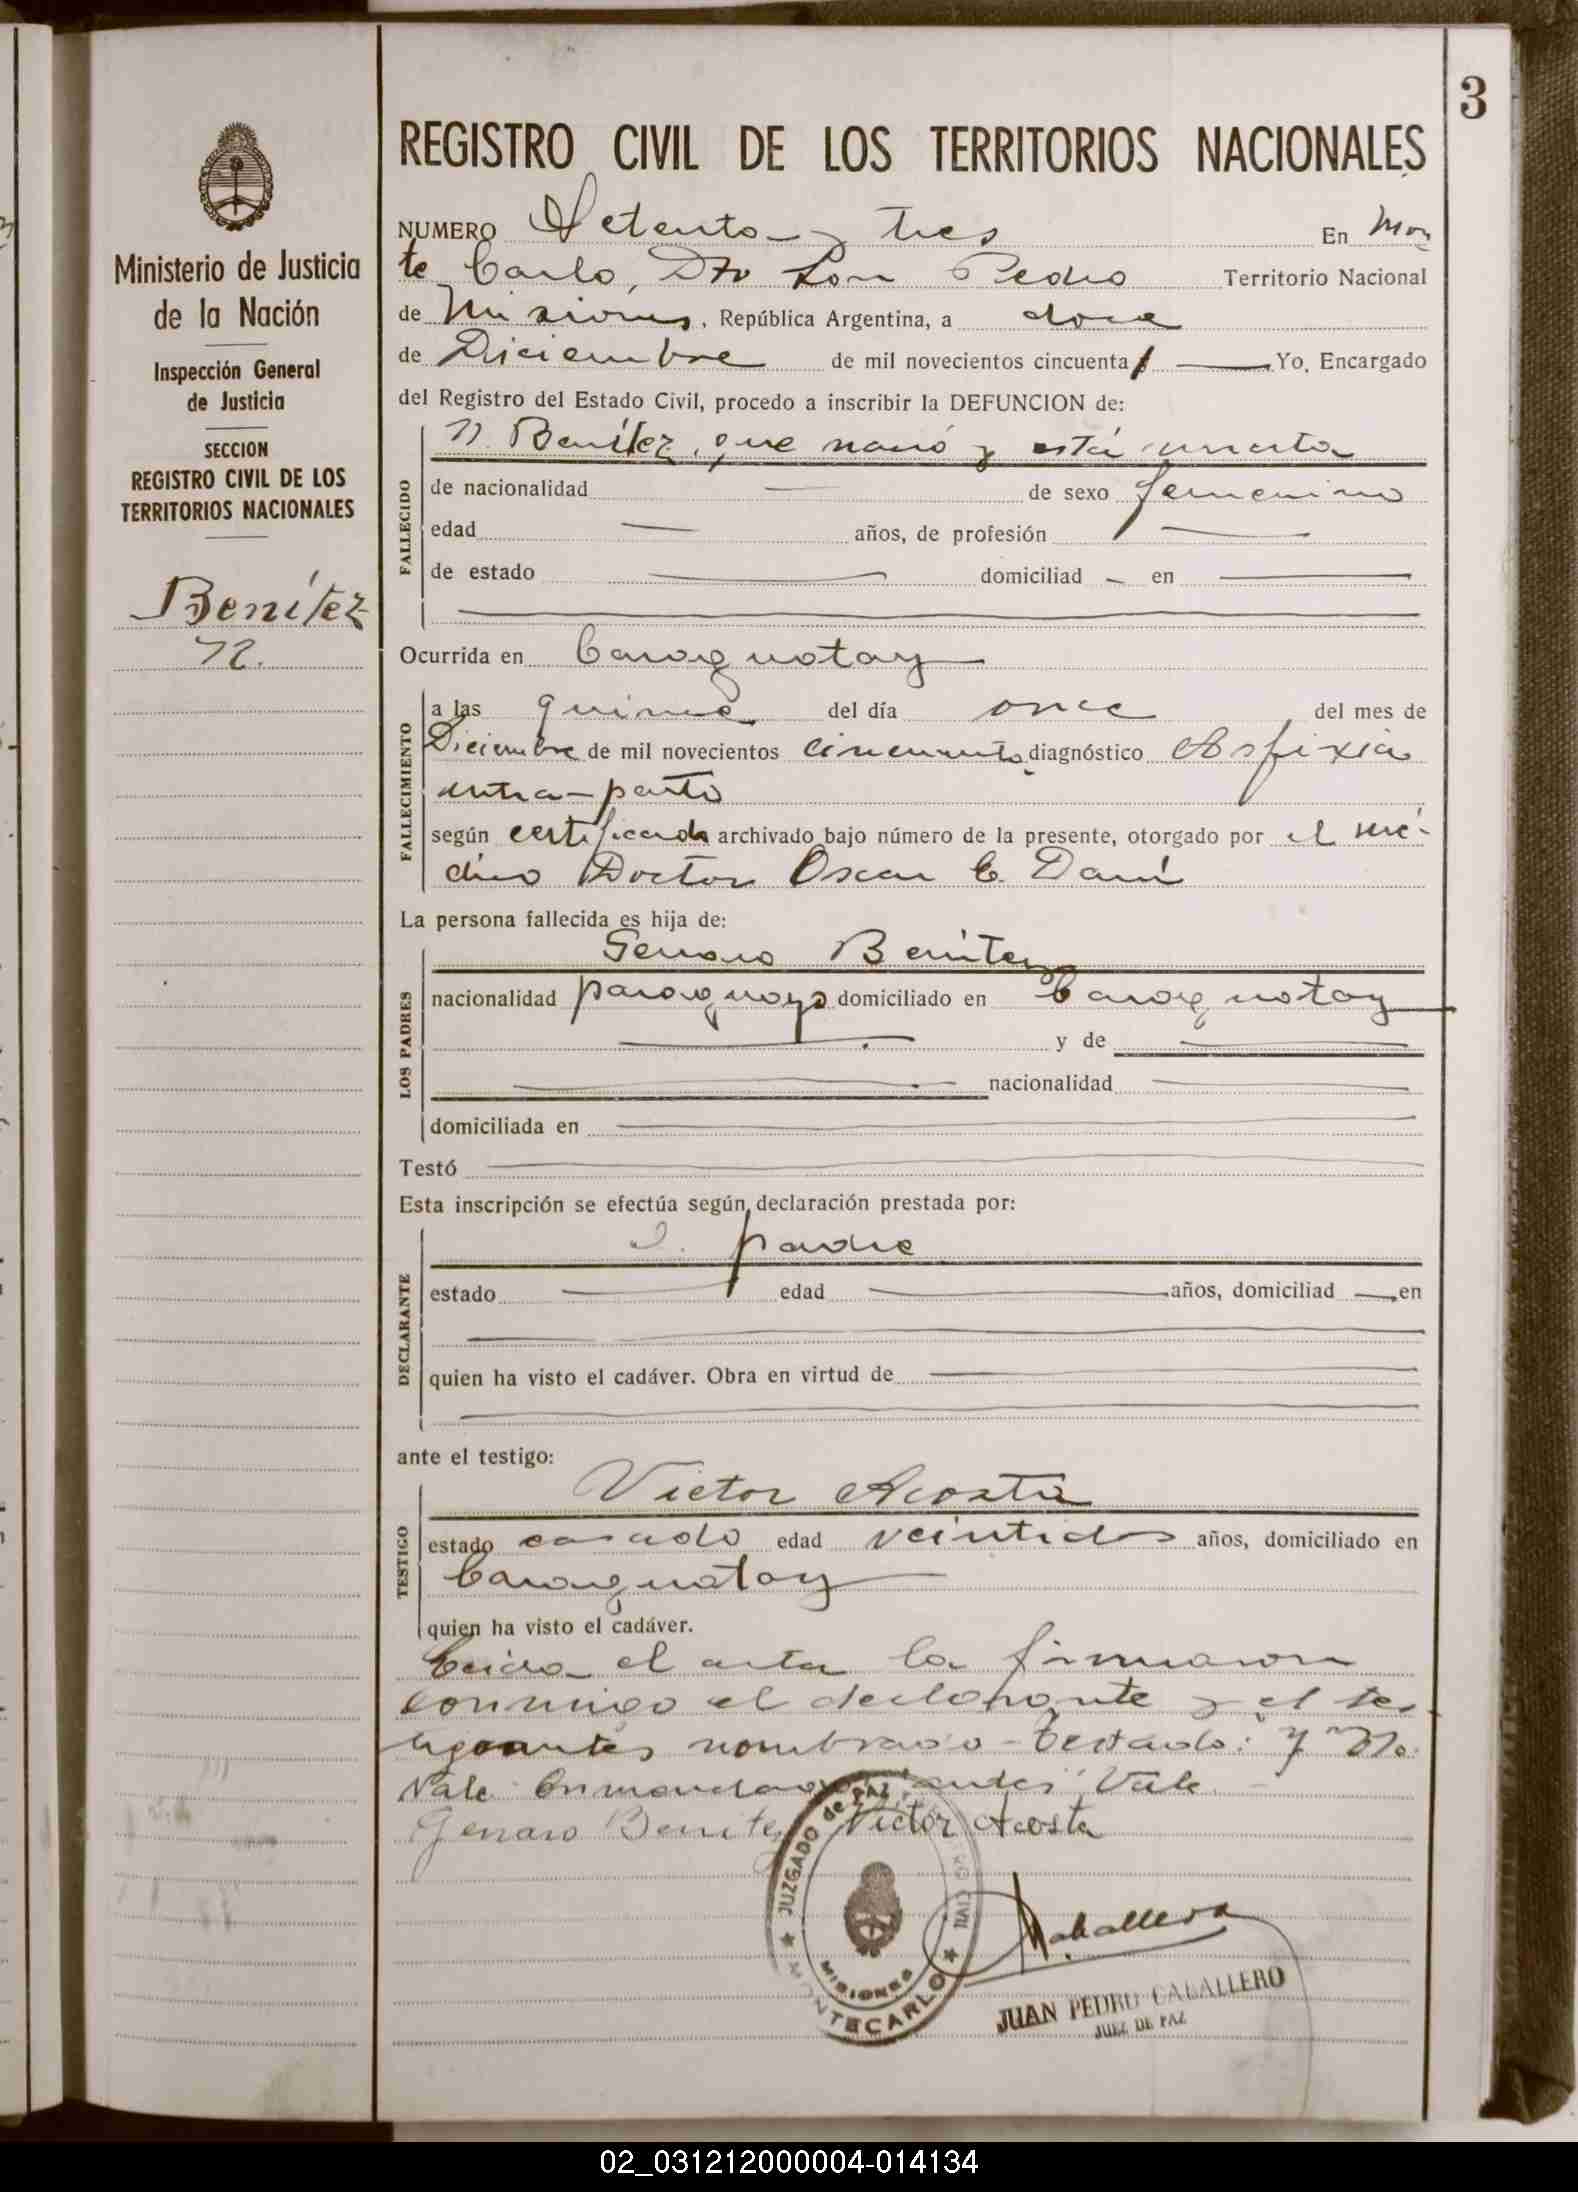 3
REGISTRO CIVIL DE LOS TERRITORIOS NACIONALES
Ministerio de Justicia
de la Nación
Inspección General
de Justicia
SECCION
REGISTRO CIVIL DE LOS
TERRITORIOS NACIONALES
Benítez
N.
NUMERO Setenta y tres En Mon
te Carlo, Dto San Pedro Territorio Nacional
de Misiones, República Argentina, a doce
de Diciembre de mil novecientos cincuenta Yo, Encargado
del Registro del Estado Civil, procedo a inscribir la DEFUNCION de:
FALLECIDO
N. Benítez, que nació y está muerta
de nacionalidad — de sexo femenino
edad — años, de profesión —
de estado — domiciliad — en —
Ocurrida en Caraguatay
FALLECIMIENTO
a las quince del día once del mes de
Diciembre de mil novecientos cincuenta diagnóstico Asfixia
intra-parto
según certificado archivado bajo número de la presente, otorgado por el mé-
dico Doctor Oscar C. Darú
La persona fallecida es hija de:
LOS PADRES
Genaro Benitez
nacionalidad paraguayo domiciliado en Caraguatay
— y de —
— nacionalidad —
domiciliada en —
Testó —
Esta inscripción se efectúa según declaración prestada por:
DECLARANTE
padre
estado — edad — años, domiciliad — en
quien ha visto el cadáver. Obra en virtud de —
ante el testigo:
TESTIGO
Victor Acosta
estado casado edad veintidos años, domiciliado en
Caraguatay
quien ha visto el cadáver.
Leida el acta la firmaron
conmigo el declarante y el tes
tigo nombrado - Testado: y No
Vale Enmendado Vale
Genaro Benitez Victor Acosta
JUZGADO de PAZ
REGISTRO CIVIL
MISIONES
MONTECARLO
Caballero
JUAN PEDRO CABALLERO
JUEZ DE PAZ
02_031212000004-014134